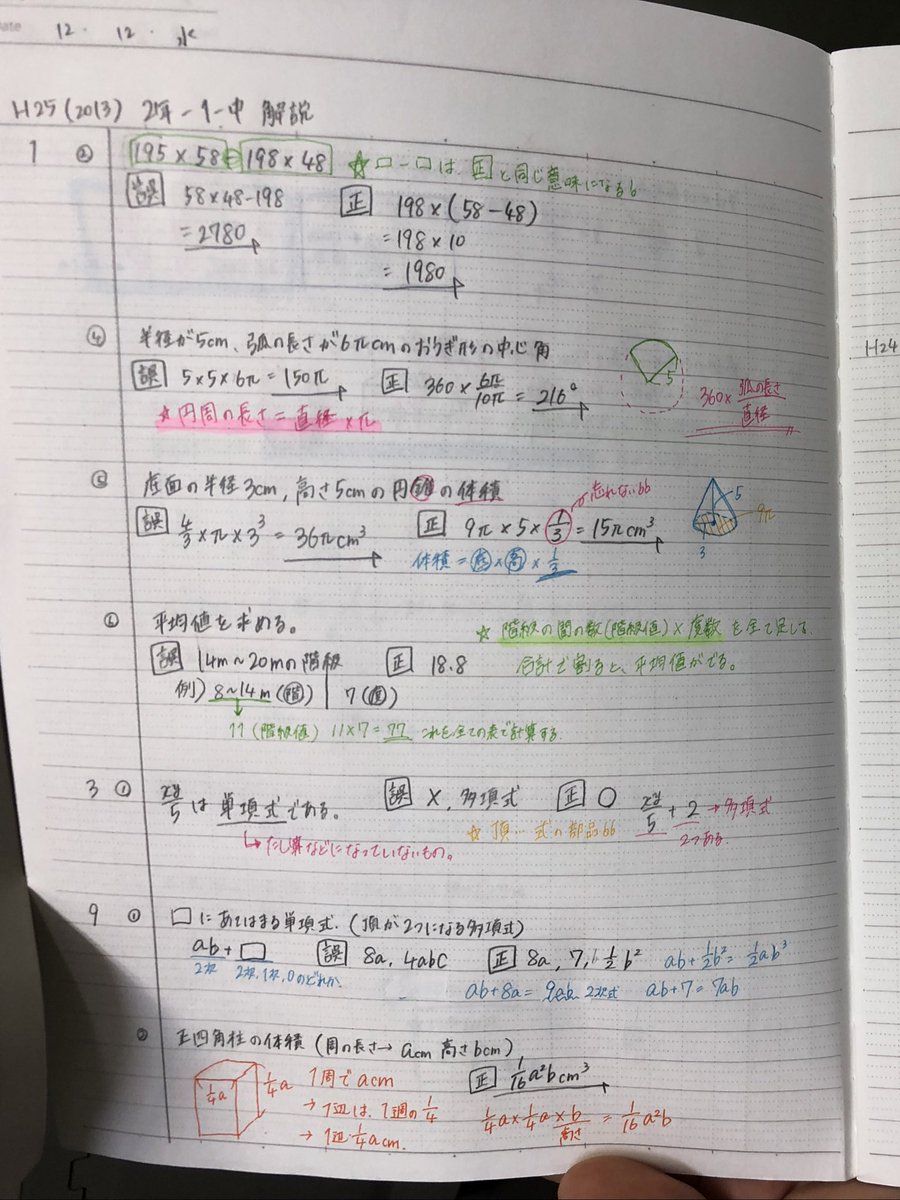 ate 12. 12. 水
H25 (2013) 2年-1-中 解説
1 ② 195×58-198×48 ☆□-□は、正と同じ意味になる
誤 58×48-198 正 198×(58-48)
=2780 =198×10
=1980
④ 半径が5cm、弧の長さが6πcmのおうぎ形の中心角
誤 5×5×6π=150π 正 360×6π/10π=216° 5
☆円周の長さ=直径×π 360×弧の長さ/直径
⑤ 底面の半径3cm,高さ5cmの円錐の体積 忘れない
誤 4/3×π×3³=36πcm³ 正 9π×5×1/3=15πcm³ 5 9π 3
体積=底×高×1/3
⑥ 平均値を求める。 ☆階級の間の数(階級値)×度数を全て足して、
誤 14m~20mの階級 正 18.8 合計で割ると、平均値がでる。
例)8~14m(階) 7(度)
11(階級値) 11×7=77 これを全ての表で計算する
H24
3 ① xy/5は単項式である。 誤 ×,多項式 正 ○ xy/5+2→多項式
↳たし算などになっていないもの。 ☆項…式の部品 2つある
9 ① □にあてはまる単項式.(項が2つになる多項式)
ab+□ 誤 8a,4abc 正 8a,7,1/2b² ab+1/2b²=1/2ab³
2次 2次,1次,0のどれか ab+8a=9ab 2次式 ab+7=7ab
② 正四角柱の体積(周の長さ→acm 高さbcm)
1/4a 1/4a 1周でacm 正 1/16a²bcm³
→1辺は、1周の1/4 1/4a×1/4a×b=1/16a²b
→1辺1/4acm. 高さ